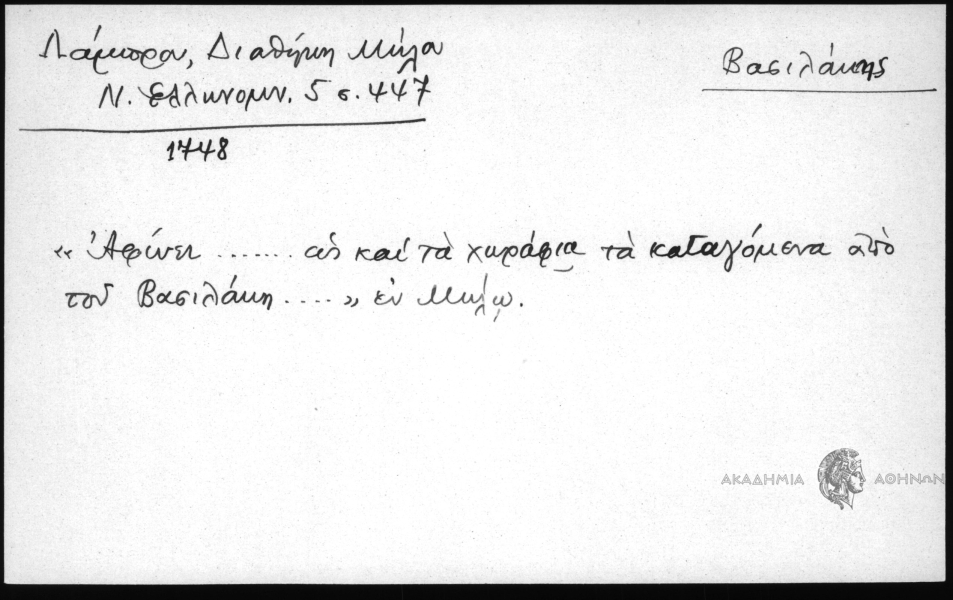 Λάμπρου, Διαθήκη Μήλου
Ν. Ἑλληνομν. 5 σ. 447
1748
Βασιλάκης
« Ἀφίνει ....... ὡς καί τὰ χωράφια τὰ καταγόμενα ἀπὸ
τοῦ Βασιλάκη .... » ἐν Μήλῳ.
ΑΚΑΔΗΜΙΑ ΑΘΗΝΩΝ